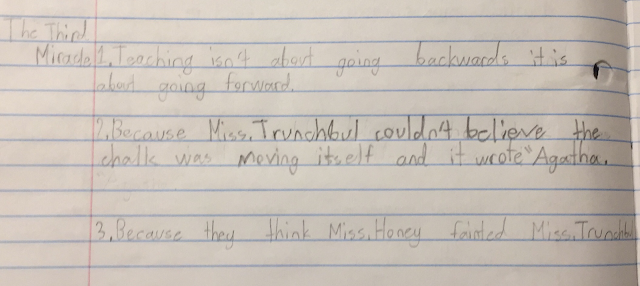 The Third
Miracle 1. Teaching isn't about going backwards it is
about going forward.
2. Because Miss. Trunchbul couldn't believe the
chalk was moving itself and it wrote "Agatha.
3. Because they think Miss. Honey fainted Miss. Trunchbul